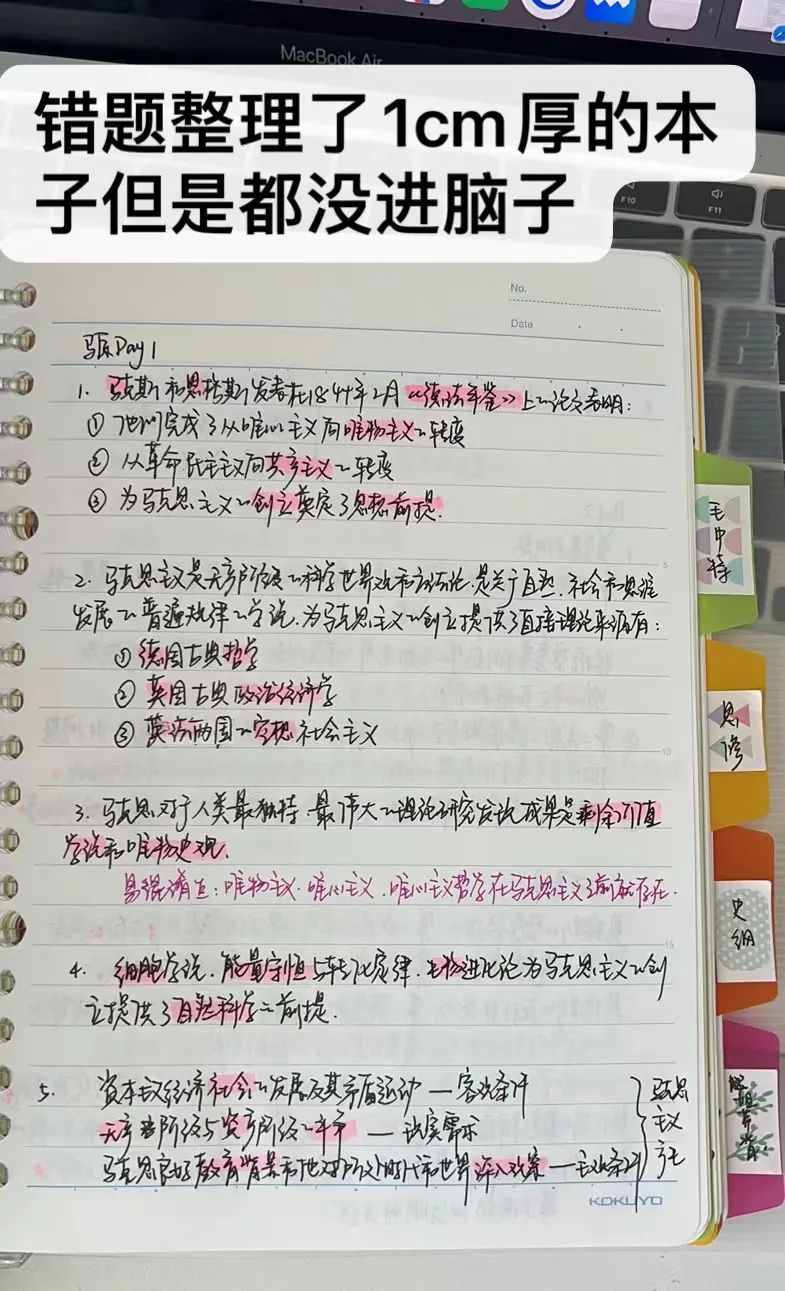 MacBook Air
错题整理了1cm厚的本
子但是都没进脑子
F10
F11
No.
Date
马原Day 1
1. 马克斯和恩格斯发表在1844年2月《德法年鉴》上の论文表明：
① 他们完成了从唯心主义向唯物主义の转度
② 从革命民主主义向共产主义の转度
③ 为马克思主义の创立奠定了思想前提.
2. 马克思主义是无产阶级の科学世界观和方法论,是关于自然、社会和思维
发展の普遍规律の学说.为马克思主义の创立提供了直接理论来源有：
① 德国古典哲学
② 英国古典政治经济学
③ 英法两国の空想社会主义
3. 马克思对于人类最独特、最伟大の理论研究发现成果是剩余价值
学说和唯物史观.
易混淆点：唯物主义、唯心主义、唯心主义哲学在马克思主义之前就存在.
4. 细胞学说、能量守恒与转化定律、生物进化论为马克思主义の创
立提供了自然科学の前提.
5. 资本主义经济社会の发展及其矛盾运动 — 客观条件
无产阶级与资产阶级の斗争 — 现实需求
马克思良好教育背景和他对所处时代和世界深入观察 — 主观条件
马克思
主义
产生
毛中特
思修
史纲
背
5
10
15
KOKUYO